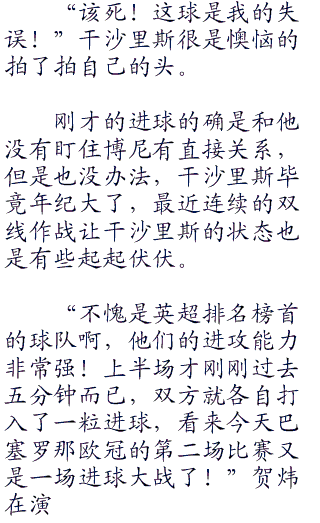 “该死！这球是我的失
误！”干沙里斯很是懊恼的
拍了拍自己的头。
刚才的进球的确是和他
没有盯住博尼有直接关系，
但是也没办法，干沙里斯毕
竟年纪大了，最近连续的双
线作战让干沙里斯的状态也
是有些起起伏伏。
“不愧是英超排名榜首
的球队啊，他们的进攻能力
非常强！上半场才刚刚过去
五分钟而已，双方就各自打
入了一粒进球，看来今天巴
塞罗那欧冠的第二场比赛又
是一场进球大战了！”贺炜
在演